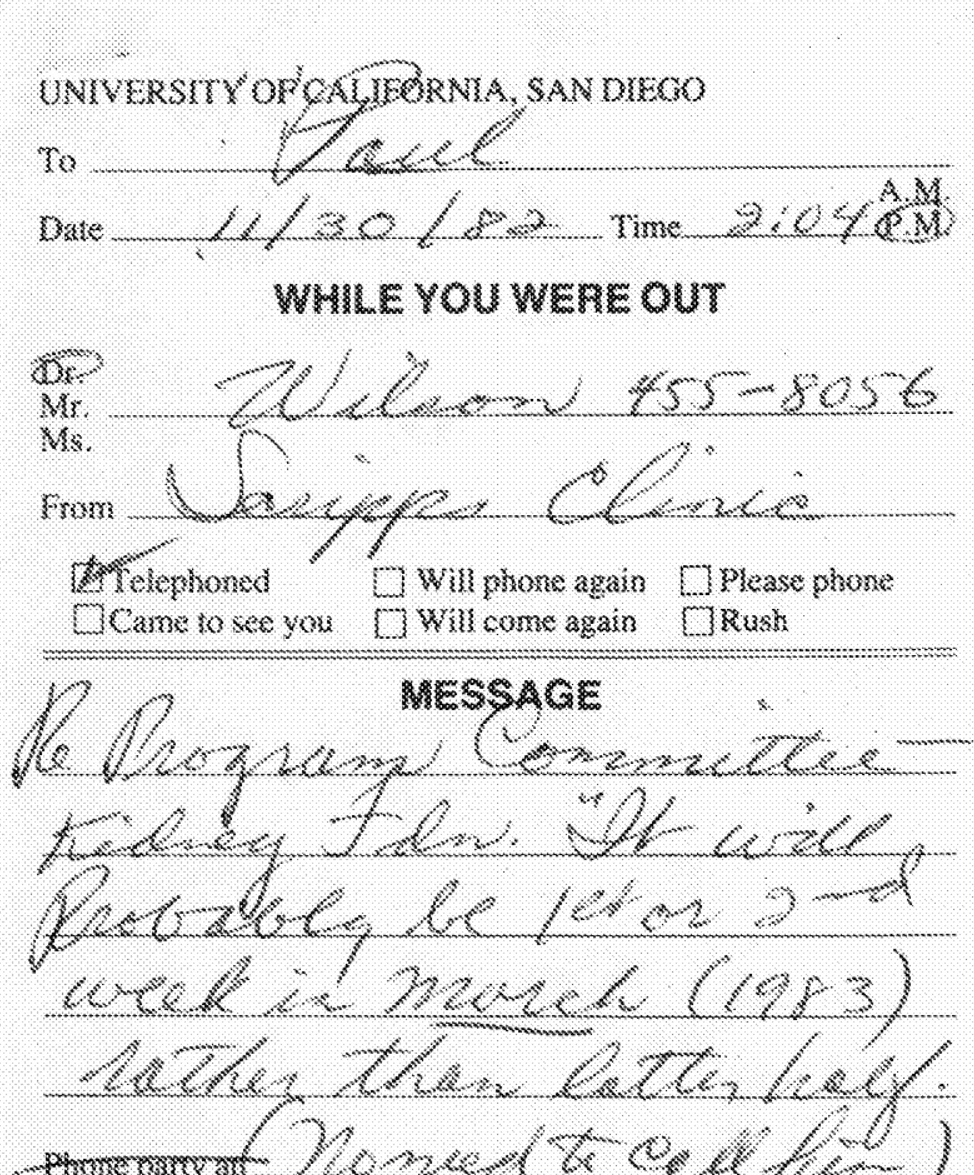 UNIVERSITY OF CALIFORNIA, SAN DIEGO
To Paul
A.M.
Date 11/30/82 Time 2:04 P.M.
WHILE YOU WERE OUT
Dr.
Mr. Wilson 455-8056
Ms.
From Scripps Clinic
Telephoned Will phone again Please phone
Came to see you Will come again Rush
MESSAGE
Re Program Committee —
Kidney Fdn. "It will
Probably be 1st or 2nd
week in March (1983)
rather than latter half.
Phone party at (No need to call him)